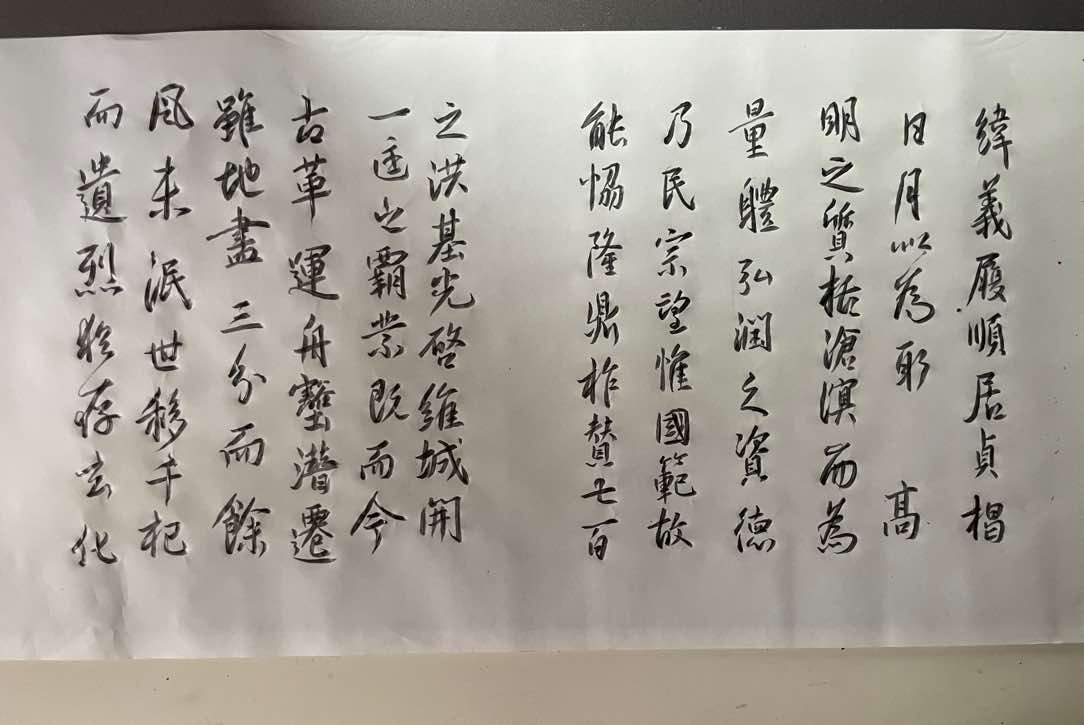 緯義履順居貞揭
日月以為躬 高
明之質括滄溟而為
量體弘潤之資德
乃民宗望惟國範故
能恊隆鼎祚贊七百
之洪基光啓維城開
一匡之霸業既而今
古革運舟壑潛遷
雖地盡三分而餘
風未泯世移千祀
而遺烈猶存玄化